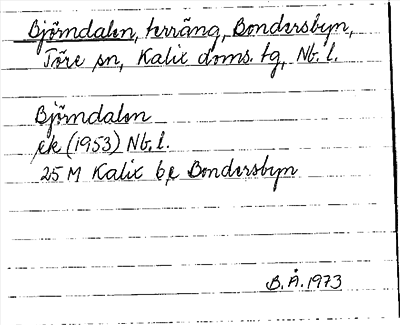 Björndalen, terräng, Bondersbyn,
Töre sn, Kalix doms. tg, Nb. l.
Björndalen
ek (1953) Nb. l.
25 M Kalix be Bondersbyn
B. Å. 1973